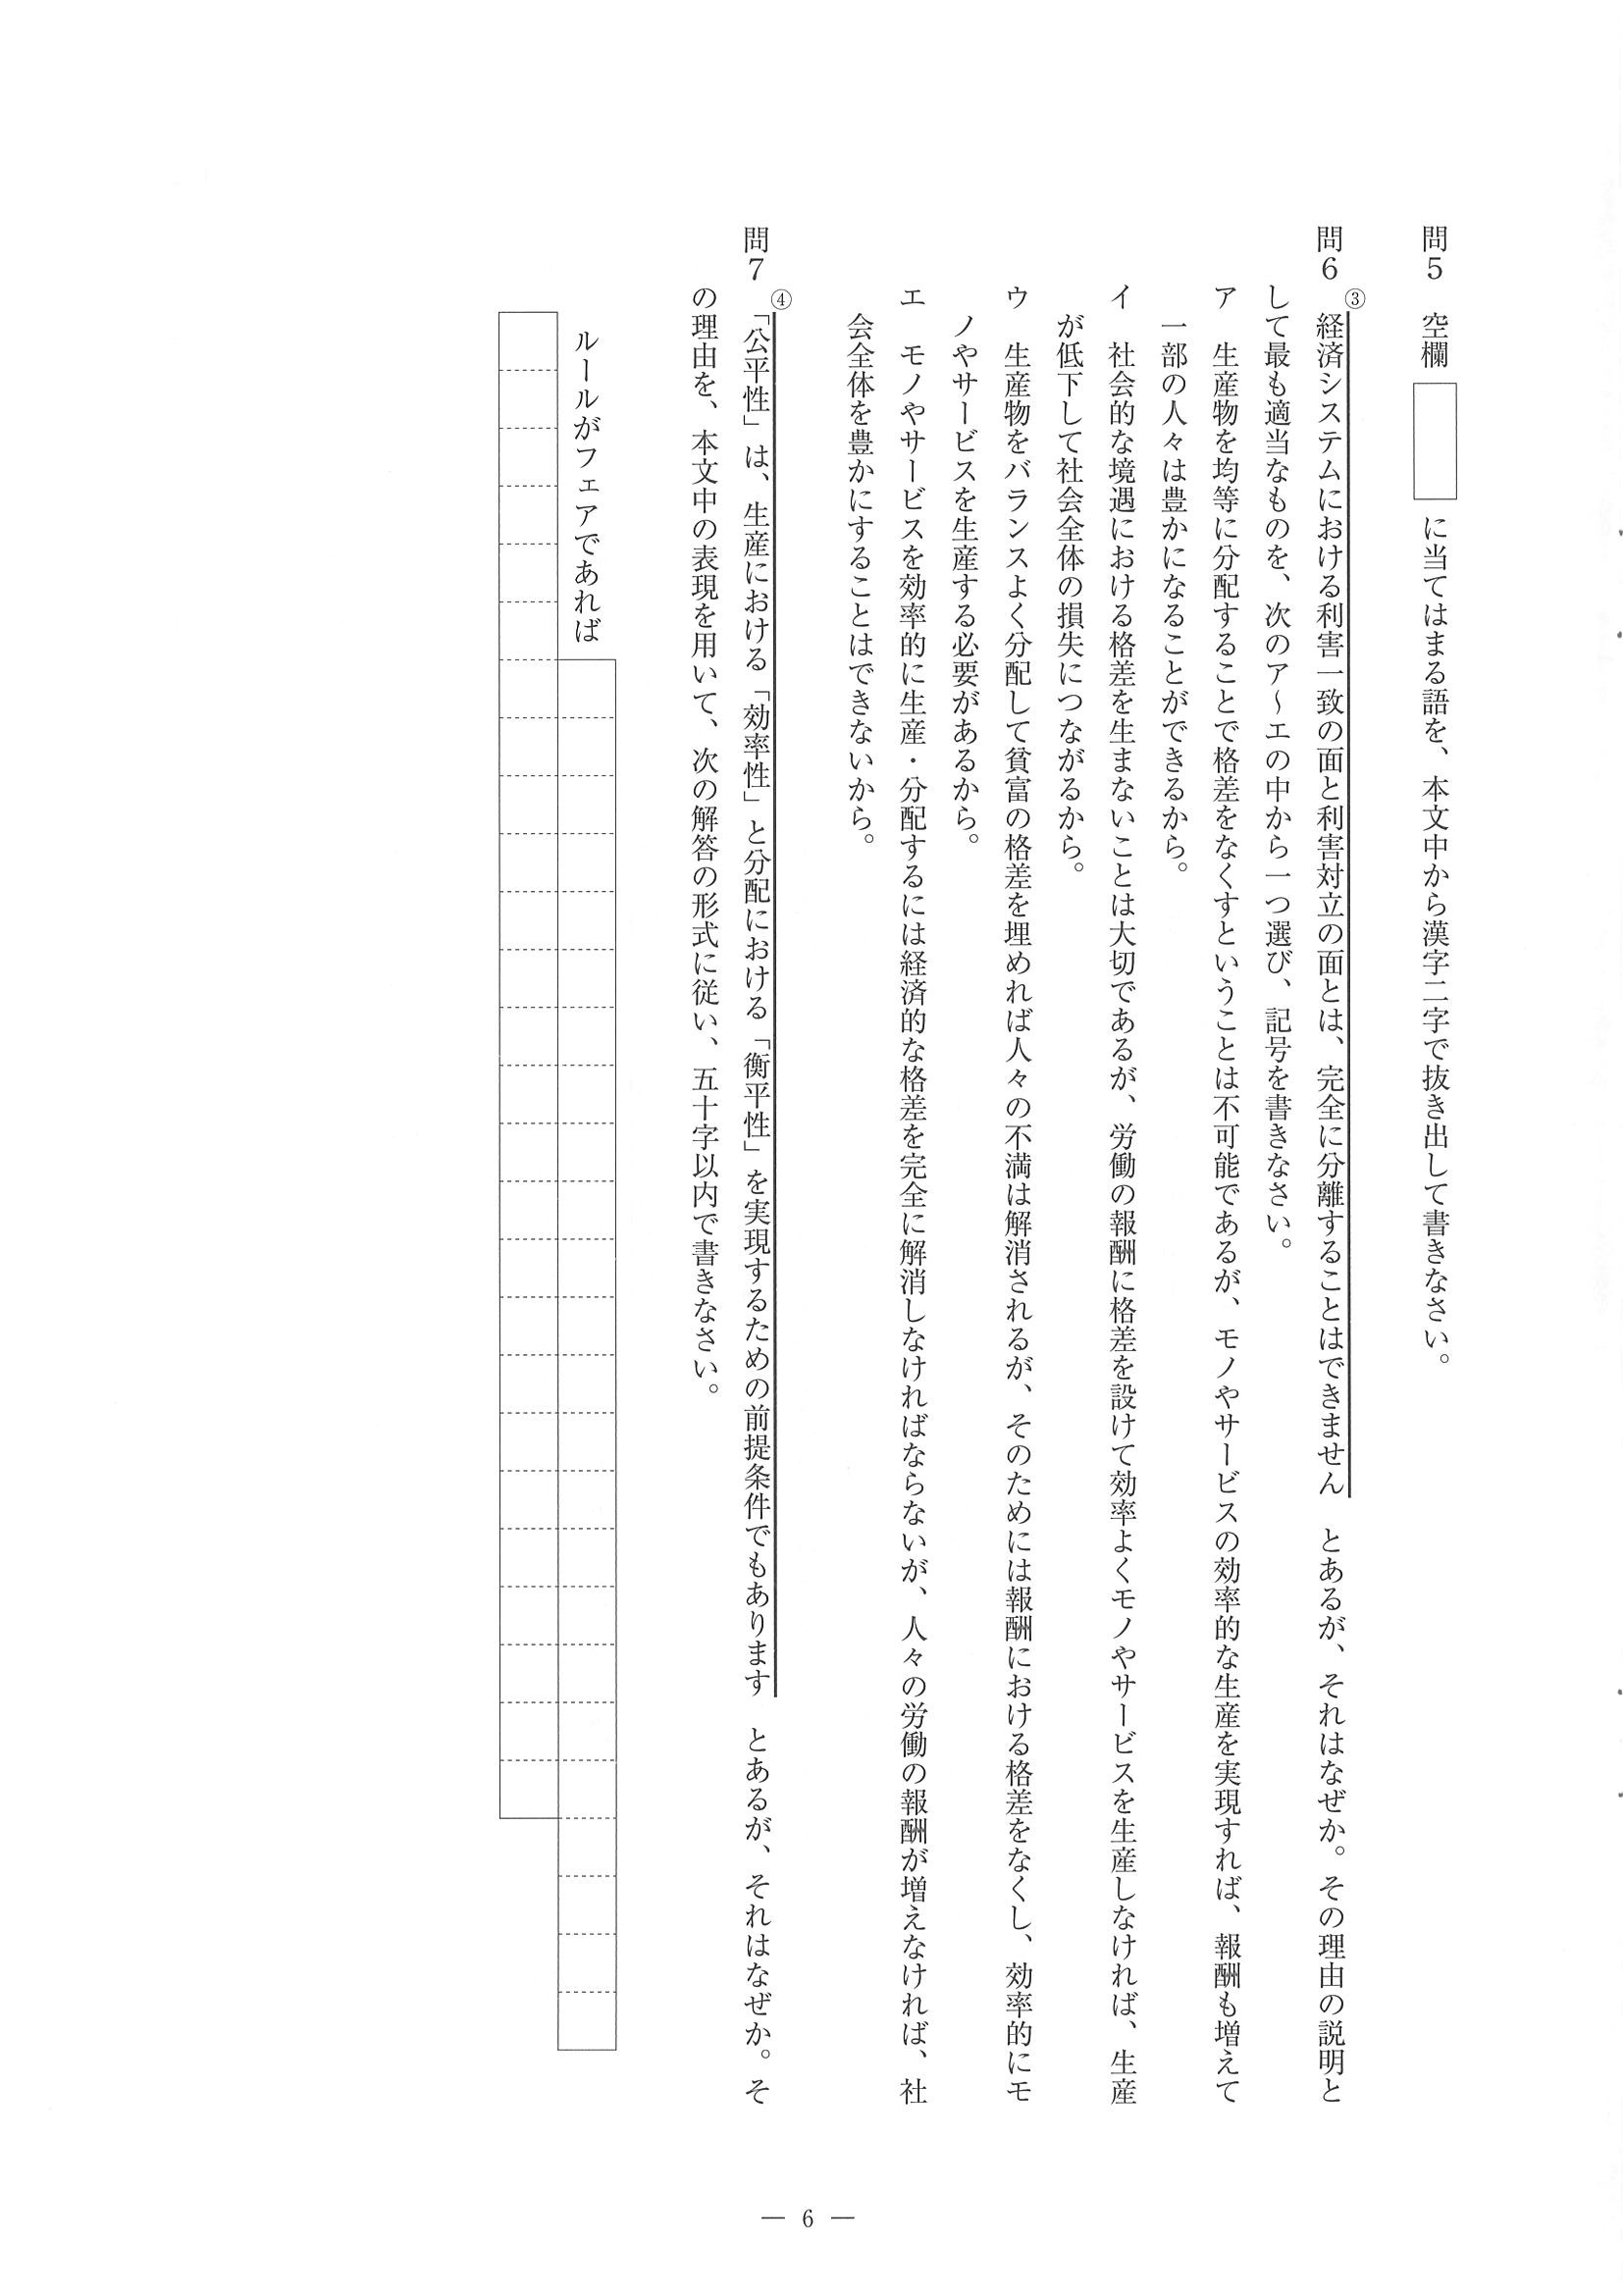 問5　空欄　に当てはまる語を、本文中から漢字二字で抜き出して書きなさい。
問6　③経済システムにおける利害一致の面と利害対立の面とは、完全に分離することはできません　とあるが、それはなぜか。その理由の説明と
して最も適当なものを、次のア～エの中から一つ選び、記号を書きなさい。
ア　生産物を均等に分配することで格差をなくすということは不可能であるが、モノやサービスの効率的な生産を実現すれば、報酬も増えて
一部の人々は豊かになることができるから。
イ　社会的な境遇における格差を生まないことは大切であるが、労働の報酬に格差を設けて効率よくモノやサービスを生産しなければ、生産
が低下して社会全体の損失につながるから。
ウ　生産物をバランスよく分配して貧富の格差を埋めれば人々の不満は解消されるが、そのためには報酬における格差をなくし、効率的にモ
ノやサービスを生産する必要があるから。
エ　モノやサービスを効率的に生産・分配するには経済的な格差を完全に解消しなければならないが、人々の労働の報酬が増えなければ、社
会全体を豊かにすることはできないから。
問7　④「公平性」は、生産における「効率性」と分配における「衡平性」を実現するための前提条件でもあります　とあるが、それはなぜか。そ
の理由を、本文中の表現を用いて、次の解答の形式に従い、五十字以内で書きなさい。
ルールがフェアであれば
— 6 —